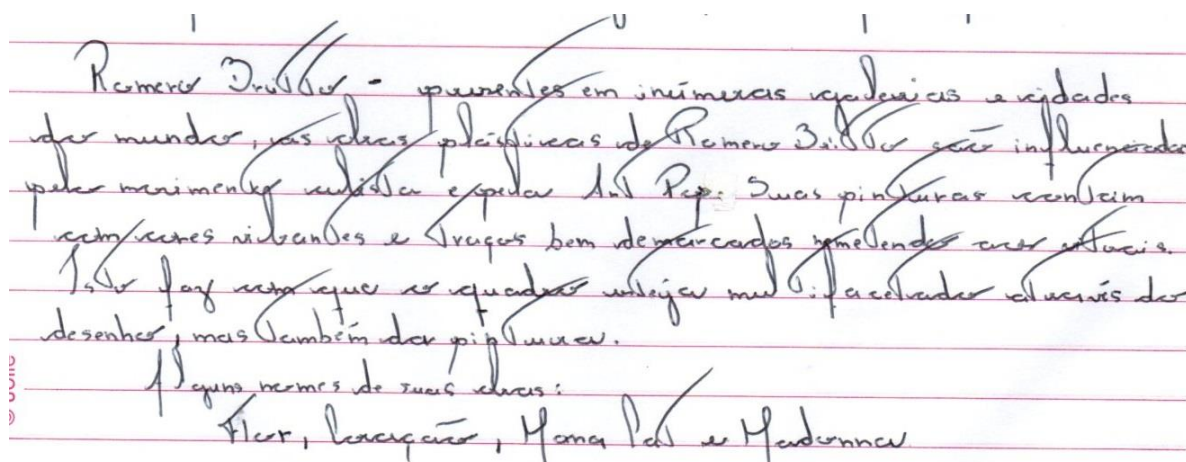 Romero Britto - presentes em inúmeras galerias e cidades
do mundo, as obras plásticas de Romero Britto são influenciadas
pelo movimento cubista e pela Art Pop. Suas pinturas contêim
com cores vibrantes e traços bem demarcados remetendo aos vitrais.
Isto faz com que o quadro esteja multifacetado através do
desenho, mas também da pintura.
Alguns nomes de suas obras:
Flor, Coração, Mona Cat e Madonna